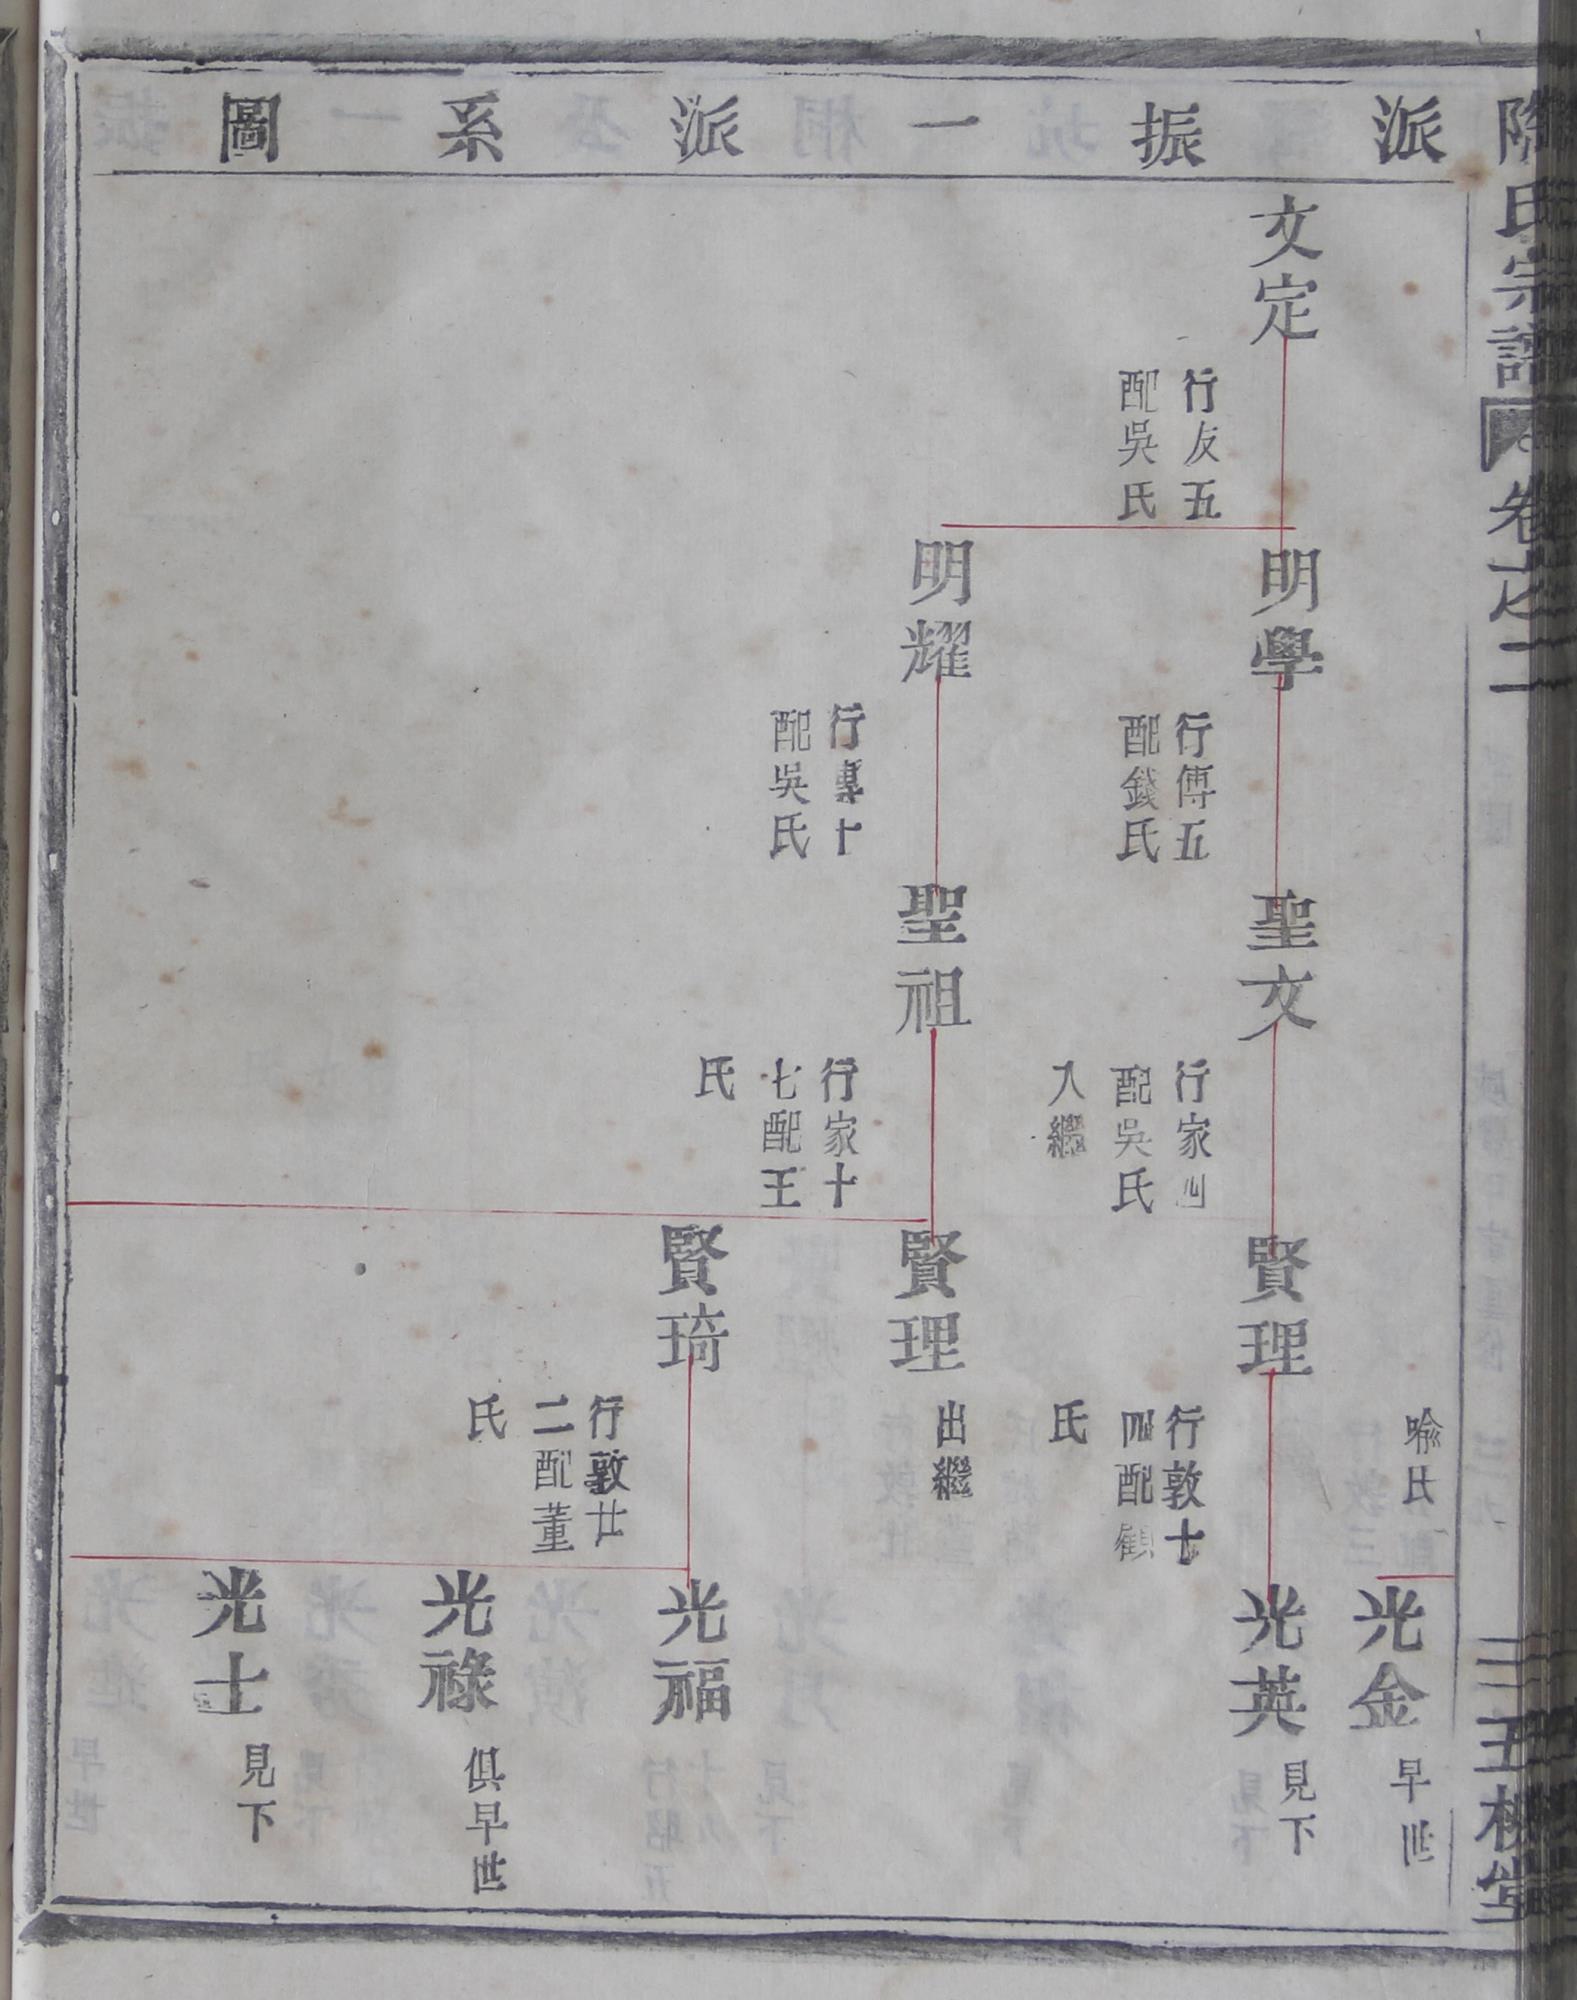 陶氏宗譜
卷十之二
三五柳堂
派振一派系圖
文定
行友五
配吳氏
明學
行傳五
配錢氏
明耀
行專十
配吳氏
聖文
行家四
配吳氏
入繼
聖祖
行家十
七配王
氏
喻氏
賢理
行敦十
四配顧
氏
賢理
出繼
賢琦
行敦廿
二配董
氏
光金
早世
光英
見下
光福
光祿
俱早世
光士
見下